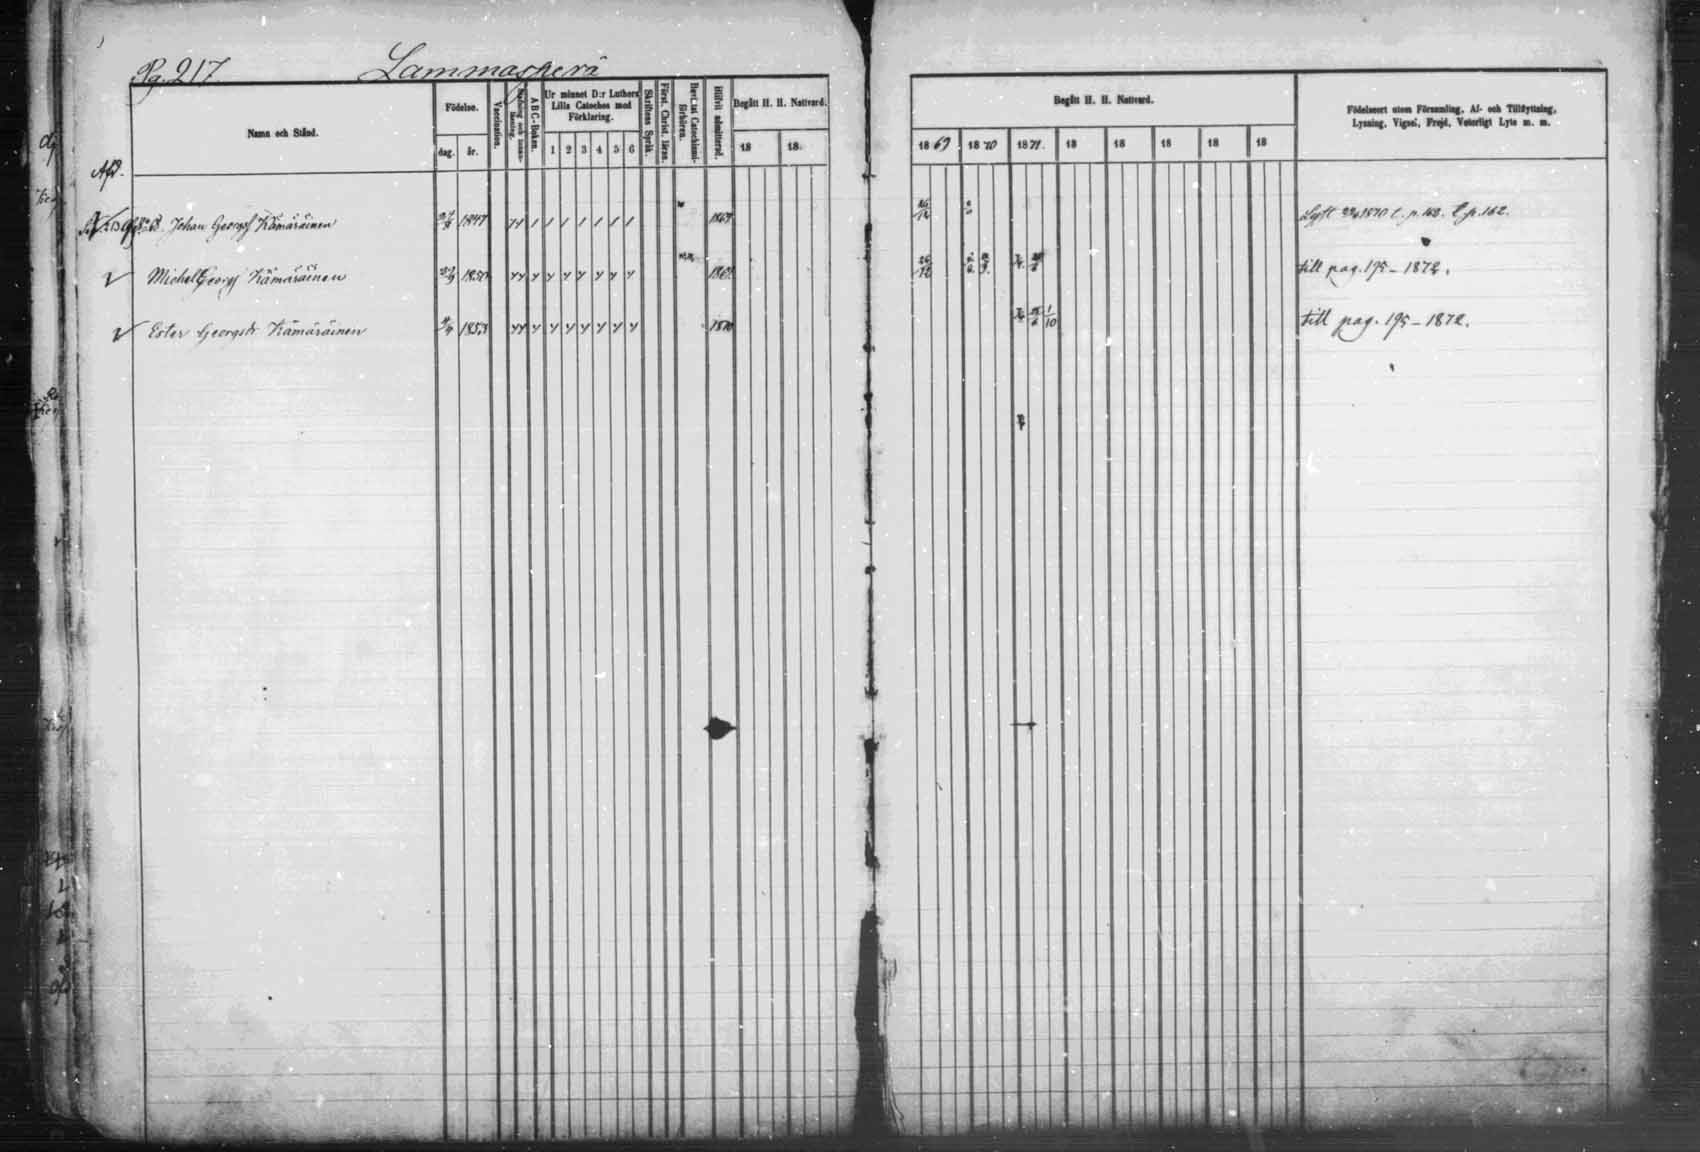 Pg. 217 Lammasperä
Namn och Stånd.
Födelse.
dag. år.
Vaccination.
A B C-Boken.
Ur minnet D:r Luthers
Lilla Cateches med
Förklaring.
1 2 3 4 5 6
Skriftens Språk.
Först. Christ. läran.
Bevistat Catechismi-
förhören.
Blifvit admitterad.
Begått H. H. Nattvard.
18 18
Begått H. H. Nattvard.
1869 1870 1871. 18 18 18 18 18
Födelseort utom Församling, Af- och Tillflyttning,
Lysning, Vigsel, Frejd, Vetterligt Lyte m. m.
Afd.
Johan Georgsf Kämäräinen 1847 1869 26/12 1870 l. p. 162.
Michel Georgsf Kämäräinen 1850 26/12 till pag. 195 – 1872.
Ester Georgsdr Kämäräinen 1853 1870 1/10 till pag. 195 – 1872.